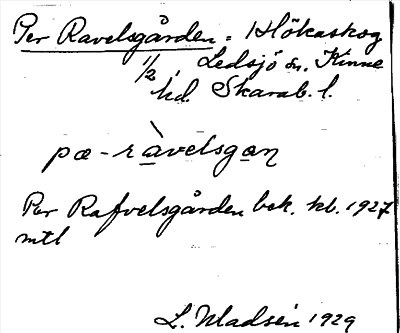 Per Ravelsgården = Hökaskog
1/2, Ledsjö sn. Kinne
hd. Skarab. l.
pæ - ràvelsgan
Per Rafvelsgården bek. kb. 1927
mtl
L. Madsén 1929